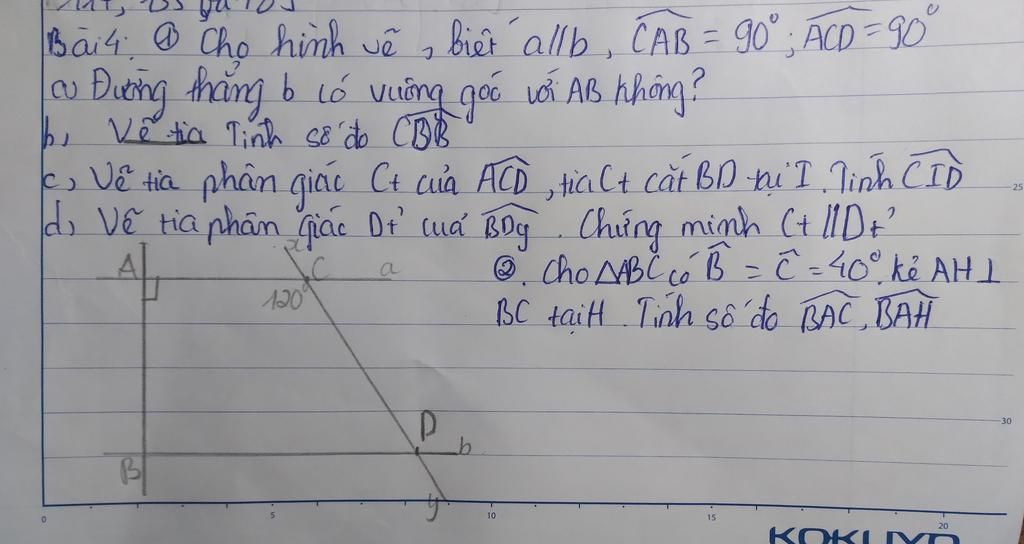 Bài 4: ① Cho hình vẽ, biết a//b, CAB = 90°; ACD = 90°
a) Đường thẳng b có vuông góc với AB không?
b, Vẽ tia Tính số đo
c, Vẽ tia phân giác Ct của ACD, tia Ct cắt BD tại I. Tính CID
d, Vẽ tia phân giác Dt' cuả BDy. Chứng minh Ct//Dt'
②. Cho ΔABC có B = C = 40°. kẻ AH⊥
BC tại H. Tính số đo BAC, BAH
x
A C a
120°
D
b
B
y
25
30
0 5 10 15 20
KOKUYO